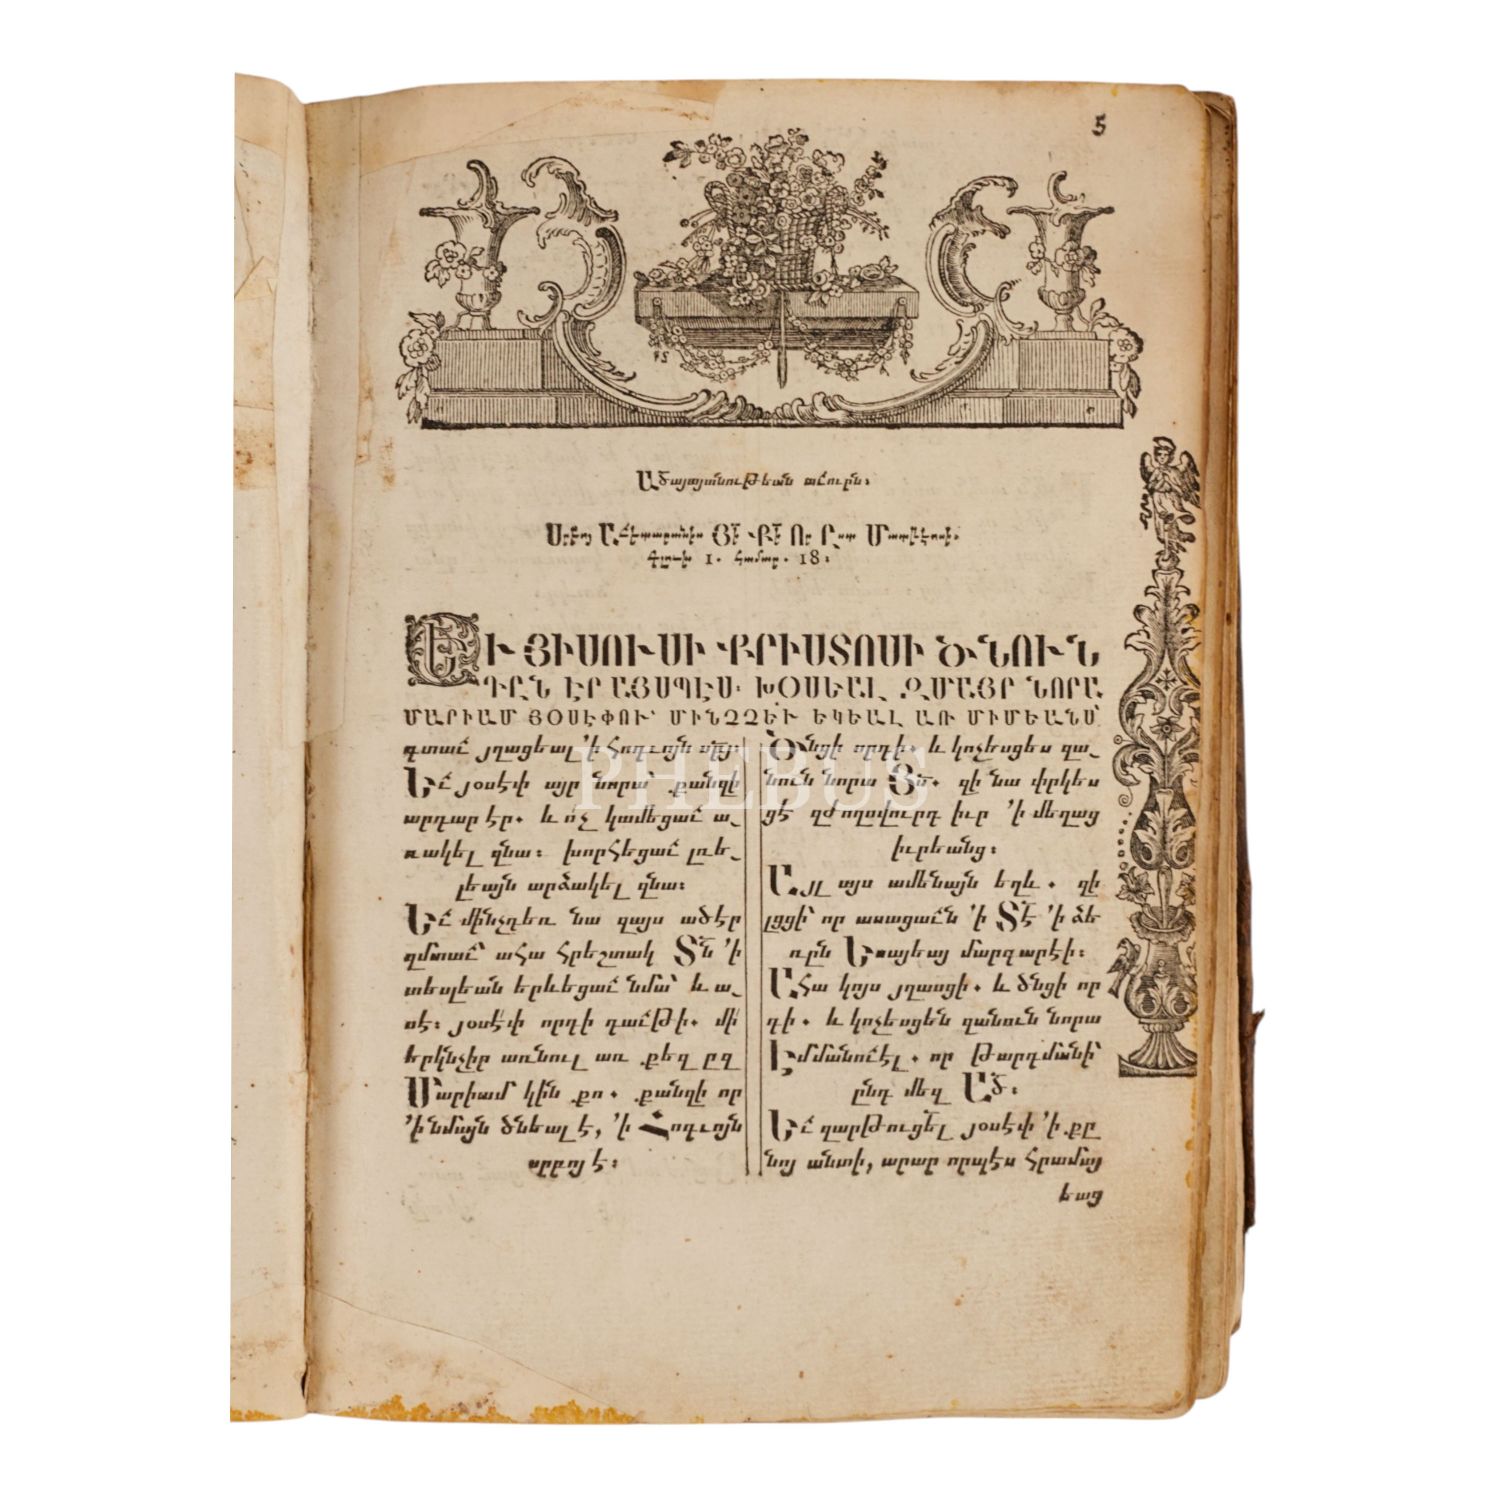 5
Ածայայտնութեան աւուրն։
Սրբոյ Աւետարանիս ՅԻ ՔԻ Որ Ըստ Մատթէոսի.
Գլուխ 1. համար. 18։
ԵՒ ՅԻՍՈՒՍԻ ՔՐԻՍՏՈՍԻ ԾՆՈՒՆ
ԴԸՆ ԷՐ ԱՅՍՊԷՍ։ ԽՕՍԵԱԼ ԶՄԱՅՐ ՆՈՐԱ
ՄԱՐԻԱՄ ՅՕՍԷՓՈՒ՝ ՄԻՆՉՉԵՒ ԵԿԵԱԼ ԱՌ ՄԻՄԵԱՆՍ՝
գտաւ յղացեալ ՚ի Հոգւոյն սրբոյ։
Եւ յօսէփ այր նորա՝ քանզի
արդար էր. և ոչ կամեցաւ ա֊
ռակել զնա։ խորհեցաւ լռե֊
լեայն արձակել զնա։
Եւ մինչդեռ նա զայս ածէր
զմտաւ՝ ահա հրեշտակ ՏՆ ՚ի
տեսլեան երևեցաւ նմա՝ և ա֊
սէ։ յօսէփ որդի դաւթի. մի
երկնչիր առնուլ առ քեզ ըզ
Մարիամ կին քո. քանզի որ
՚ի նմայն ծնեալ է, ՚ի Հոգւոյն
սրբոյ է։
Ծնցի որդի. և կոչեսցես զա֊
նուն նորա ՅՍ. զի նա փրկես
ցէ զժողովուրդ իւր ՚ի մեղաց
իւրեանց։
Այլ այս ամենայն եղև. զի
լցցի՝ որ ասացաւն ՚ի ՏԷ ՚ի ձե
ռըն Եսայեայ մարգարէի։
Ահա կոյս յղասցի. և ծնցի որ
դի. և կոչեսցեն զանուն նորա
Էմմանուէլ. որ թարգմանի՝
ընդ մեզ ԱԾ։
Եւ զարթուցել յօսէփ ՚ի քը
նոյ անտի, արար որպէս հրամայ
եաց
PHEBUS